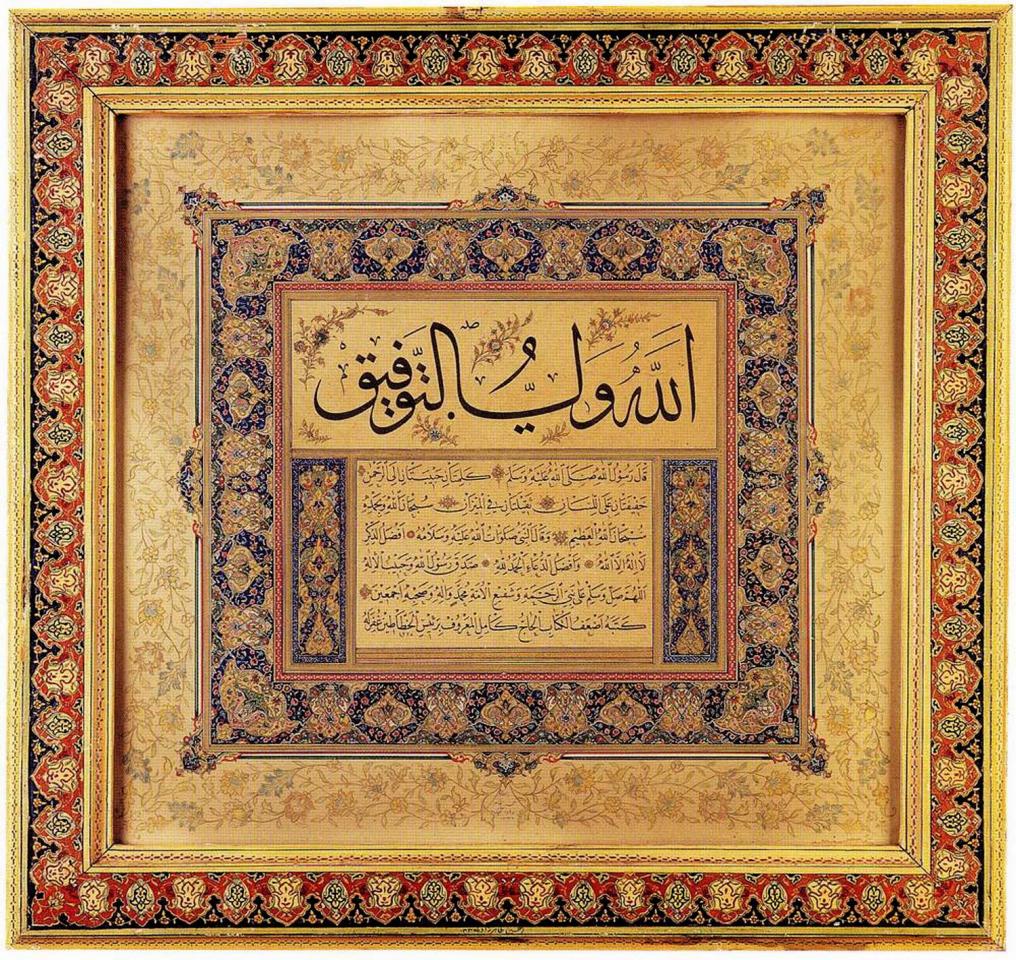 اَللّٰهُ وَلِيُّ التَّوْفِيقِ
قَالَ رَسُولُ اللهِ صَلَّى اللهُ عَلَيْهِ وَسَلَّمَ كَلِمَتَانِ حَبِيبَتَانِ اِلَى الرَّحْمٰنِ
خَفِيفَتَانِ عَلَى اللِّسَانِ ثَقِيلَتَانِ فِي الْمِيزَانِ سُبْحَانَ اللهِ وَبِحَمْدِهِ
سُبْحَانَ اللهِ الْعَظِيمِ وَقَالَ النَّبِيُّ صَلَوَاتُ اللهِ عَلَيْهِ وَسَلَامُهُ اَفْضَلُ الذِّكْرِ
لَا اِلٰهَ اِلَّا اللهُ وَاَفْضَلُ الدُّعَاءِ اَلْحَمْدُ لِلّٰهِ صَدَقَ رَسُولُ اللهِ وَحَبِيبُ الْاِلٰهِ
اَللّٰهُمَّ صَلِّ وَسَلِّمْ عَلَى نَبِيِّ الرَّحْمَةِ وَشَفِيعِ الْاُمَّةِ مُحَمَّدٍ وَاٰلِهِ وَصَحْبِهِ اَجْمَعِينَ
كَتَبَهُ اَضْعَفُ الْكُتَّابِ الْحَاجُّ كَامِلُ الْمَعْرُوفُ بِرَئِيسِ الْخَطَّاطِينَ غُفِرَ لَهُ